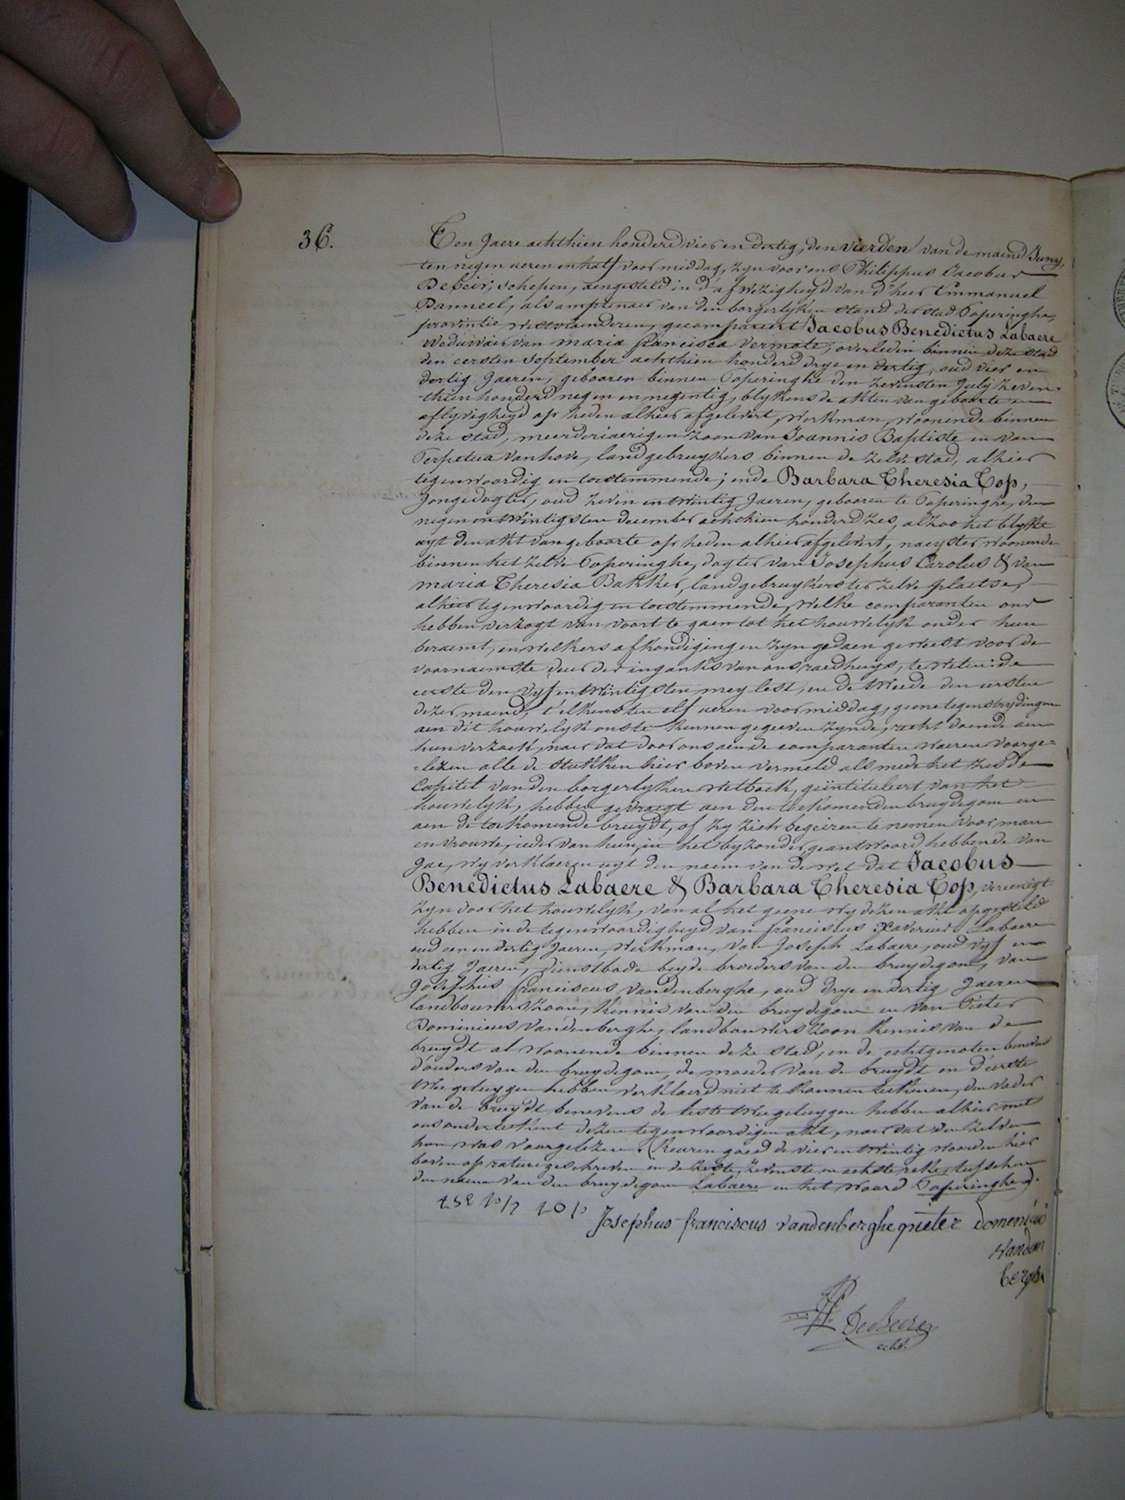 36.
Ten Jaere achthien honderd vier en dertig, den vierden van de maend Juny,
ten negen ueren en half voor middag, zyn voor ons Philippus Jacobus
Debeir, schepen, aengesteld in d'afwezigheyd van d'heer Emmanuel
Panneel, als amptenaer van den borgerlyken stand der stad Poperinghe,
provintie Westvlaenderen, gecompareert Jacobus Benedictus Labaere
Weduwaer van maria francisca Vermote, overleden binnen deze stad
den eersten September achthien honderd drye en dertig, oud vier en
dertig Jaeren, gebooren binnen Poperinghe den zevensten July zeven-
thien honderd negen en negentig, blykens de akten van geboorte en
aflyvigheyd op heden alhier afgelevert, Werkman, Woonende binnen
deze stad, meerderjaerigen zoon van Joannis Baptiste en van
Perpetua Vanhove, landgebruykers binnen de zelve stad, alhier
tegenwoordig en toestemmende; ende Barbara Theresia Top,
Jongedogter, oud zeven en twintig Jaeren, gebooren te Poperinghe, den
negen en twintigsten december achthien honderd zes, alzoo het blykt
uyt den akt van geboorte op heden alhier afgelevert, naeyster woonende
binnen het zelve Poperinghe, dogter van Josephus Carolus & van
maria Theresia Bakker, landgebruykers ter zelve plaetse,
alhier tegenwoordig en toestemmende, Welke comparanten ons
hebben verzogt van voort te gaen tot het houwelyk onder hun
beraemt, en welkers afkondigingen zyn gedaen geweest voor de
voornaemste deur der ingank van ons raedhuys, te weten: de
eerste den vyf en twintigsten mey lest, en de tweede den eersten
dezer maend, t'elkens ten elf ueren voor middag, geene tegenstrydingen
aen dit houwelyk ons te kennen gegeven zynde, recht doende aen
hun verzoek, naer dat door ons aen de comparanten waeren voorge-
lezen alle de stukken hier boven vermeld als mede het zesde
Capitel van den borgerlyken Wetboek, geintituleert van het
houwelyk, hebben gevraegt aen den toekomenden bruydegom en
aen de toekomende bruydt, of zy zich begeiren te nemen voor man
en vrouwe, ieder van hun in het byzonder geantwoord hebbende van
Jae, wy verklaeren uyt den naem van de Wet dat Jacobus
Benedictus Labaere & Barbara Theresia Top, vereenigt
zyn door het houwelyk, van al het geene wy dezen akt opgesteld
hebben in de tegenwoordigheyd van franciscus Xaverius Labaere
oud een en dertig Jaeren, Werkman, van Joseph Labaere, oud vyf en
dertig Jaeren, dienstbode beyde broeders van den bruydegom, van
Josephus franciscus vandenberghe, oud drye en dertig Jaeren
landbouwers zoon, kennis van den bruydegom en van Pieter
Dominicus Vandenberghe, landbouwers zoon kennis van de
bruydt al woonende binnen deze stad, en de echtgenoten benevens
d'ouders van den bruydegom, de moeder van de bruydt en d'eerste
twee getuygen hebben verklaerd niet te konnen teekenen, den vader
van de bruydt benevens de leste twee getuygen hebben alhier met
ons onderteekent dezen tegenwoordigen akt, naer dat den zelven
hun was voorgelezen. Keuren goed de vier en twintig woorden hier
boven op rature geschreven en de zeste, zevenste en achtste reke, tusschen
den naeme van den bruydegom Labaere en het woord Poperinghe.
Josephus franciscus vandenberghe pieter Domenicus
Vanden
berghe
PJ DeBeir
sch.